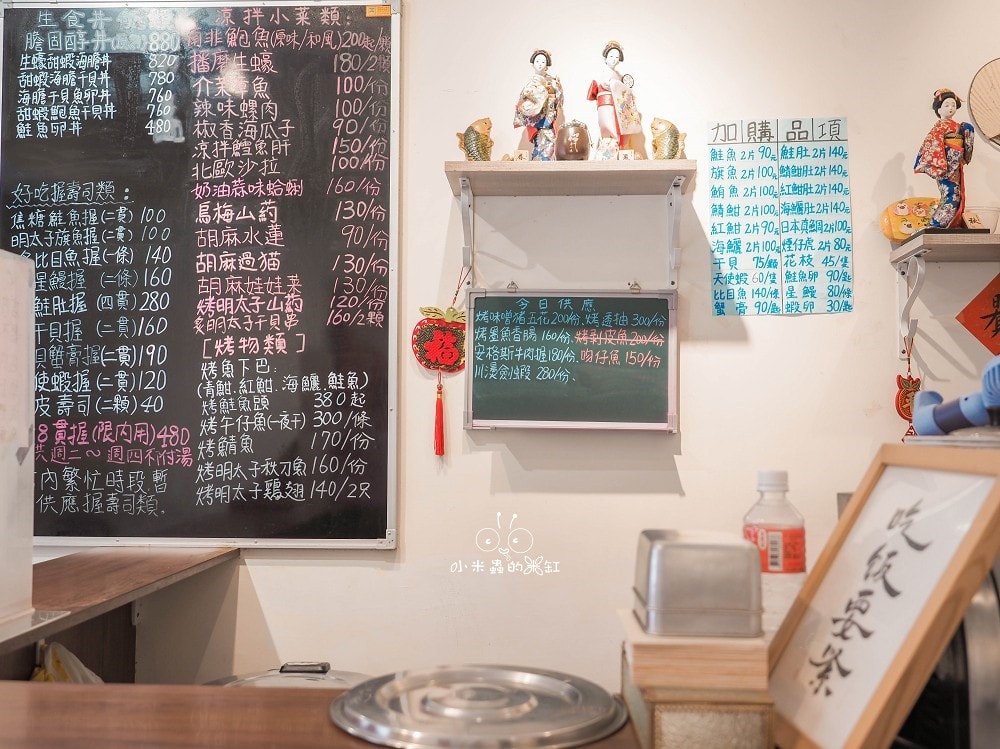 生食丼
膽固醇丼 880
生蠔甜蝦海膽丼 820
甜蝦海膽干貝丼 780
海膽干貝魚卵丼 760
甜蝦鮑魚干貝丼 760
鮭魚卵丼 480
好吃握壽司類:
焦糖鮭魚握(二貫) 100
明太子旗魚握(二貫) 100
比目魚握(一條) 140
星鰻握 (一條) 160
鮭肚握 (四貫) 280
干貝握 (二貫) 160
蟹膏握(二貫) 190
使蝦握(二貫) 120
皮壽司(二顆) 40
8貫握(限內用) 480
週二～週四不附湯
內繁忙時段暫
供應握壽司類.
涼拌小菜類:
南非鮑魚(原味/和風) 200起/顆
播磨生蠔 180/2顆
介茉章魚 100/份
辣味螺肉 100/份
椒香海瓜子 90/份
涼拌鱈魚肝 150/份
北歐沙拉 100/份
奶油蒜味蛤蜊 160/份
烏梅山葯 130/份
胡麻水蓮 90/份
胡麻過猫 130/份
胡麻娃娃菜 130/份
烤明太子山葯 120/份
炙明太子干貝串 160/2顆
[烤物類]
烤魚下巴:
(青魽.紅魽.海鱺.鮭魚)
烤鮭魚頭 380起
烤午仔魚(一夜干) 300/條
烤鯖魚 170/份
烤明太子秋刀魚 160/份
烤明太子鷄翅 140/2只
今日供應
烤味噌豬五花200/份.烤透抽300/份
烤墨魚香腸160/份.烤剝皮魚200/份
安格斯牛肉握180/份.吻仔魚150/份
川燙劍蝦 280/份.
加購品項
鮭魚2片90元 鮭肚2片140元
旗魚2片100元 鯖魽肚2片140元
鮪魚2片90元 紅魽肚2片140元
鯖魽2片100元 海鱺肚2片140元
紅魽2片90元 日本真鯛2片100元
海鱺2片100元 煙仔虎2片80元
干貝 75/顆 花枝 45/隻
天使蝦 60/隻 鮭魚卵 90/匙
比目魚 140/條 星鰻 80/條
蟹膏 90/匙 蝦卵 30/匙
福
小米蟲的米缸
吃飯要茶